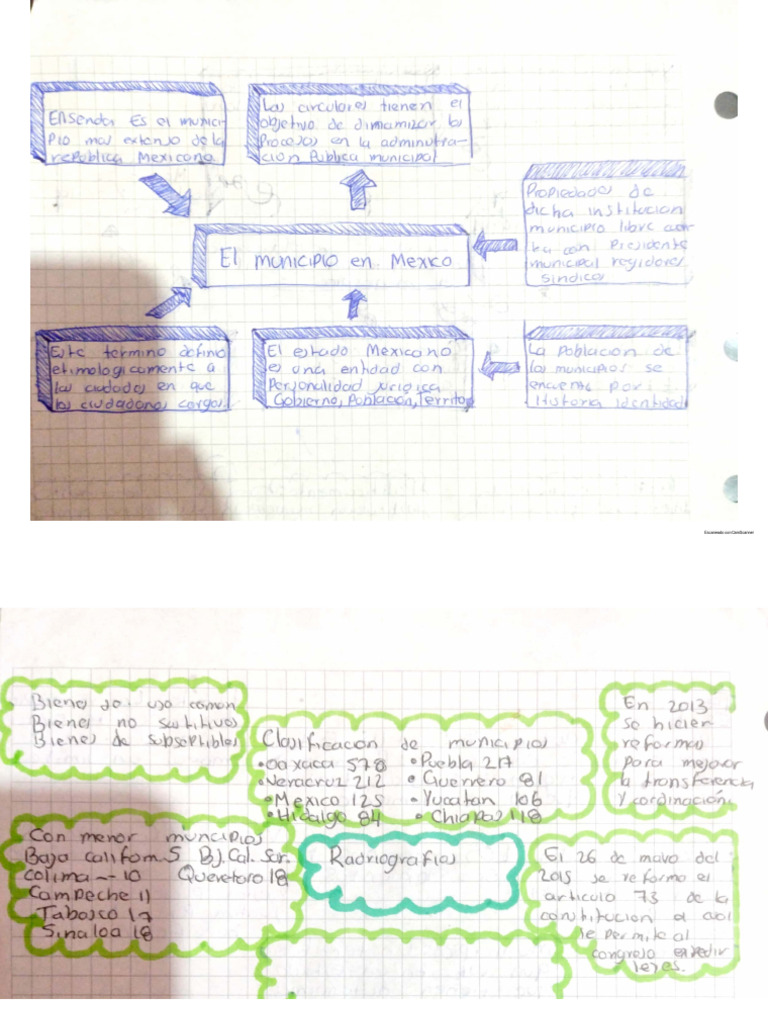 Ensenda Es el munici-
pio mas extenso de la
republica Mexicano
Las circulares tienen el
objetivo de dinamizar los
Procesos en la administra-
cion Publica municipal
Propiedades de
dicha institucion
municipio libre cuen
ta con Presidente
municipal regidores
sindicos
El municipio en Mexico
Este termino defino
etimologicamente a
las ciudades en que
los ciudadanos cargos
El estado Mexicano
es una entidad con
Personalidad juridica
Gobierno, Población, Territo
La Poblacion de
los municipios se
encuentra por
Historia identidad
Escaneado con CamScanner
Bienes de uso comun
Bienes no
Bienes de
Clasificación de municipios
• Oaxaca 570 • Puebla 217
• Veracruz 212 • Guerrero 81
• Mexico 125 • Yucatan 106
• Hidalgo 84 • Chiapas 118
En 2013
se hicier
reformas
para mejorar
la transferencia
y cordinación.
Con menor municipios
Baja Californ. 5 Bj. Cal. Sur.
colima - 10 Queretaro 18
Campeche 11
Tabasco 17
Sinaloa 18
Radriografias
El 26 de mayo del
2015 se reformo el
articulo 73 de la
constitucion al cual
le permite al
congreso expedir
leyes.